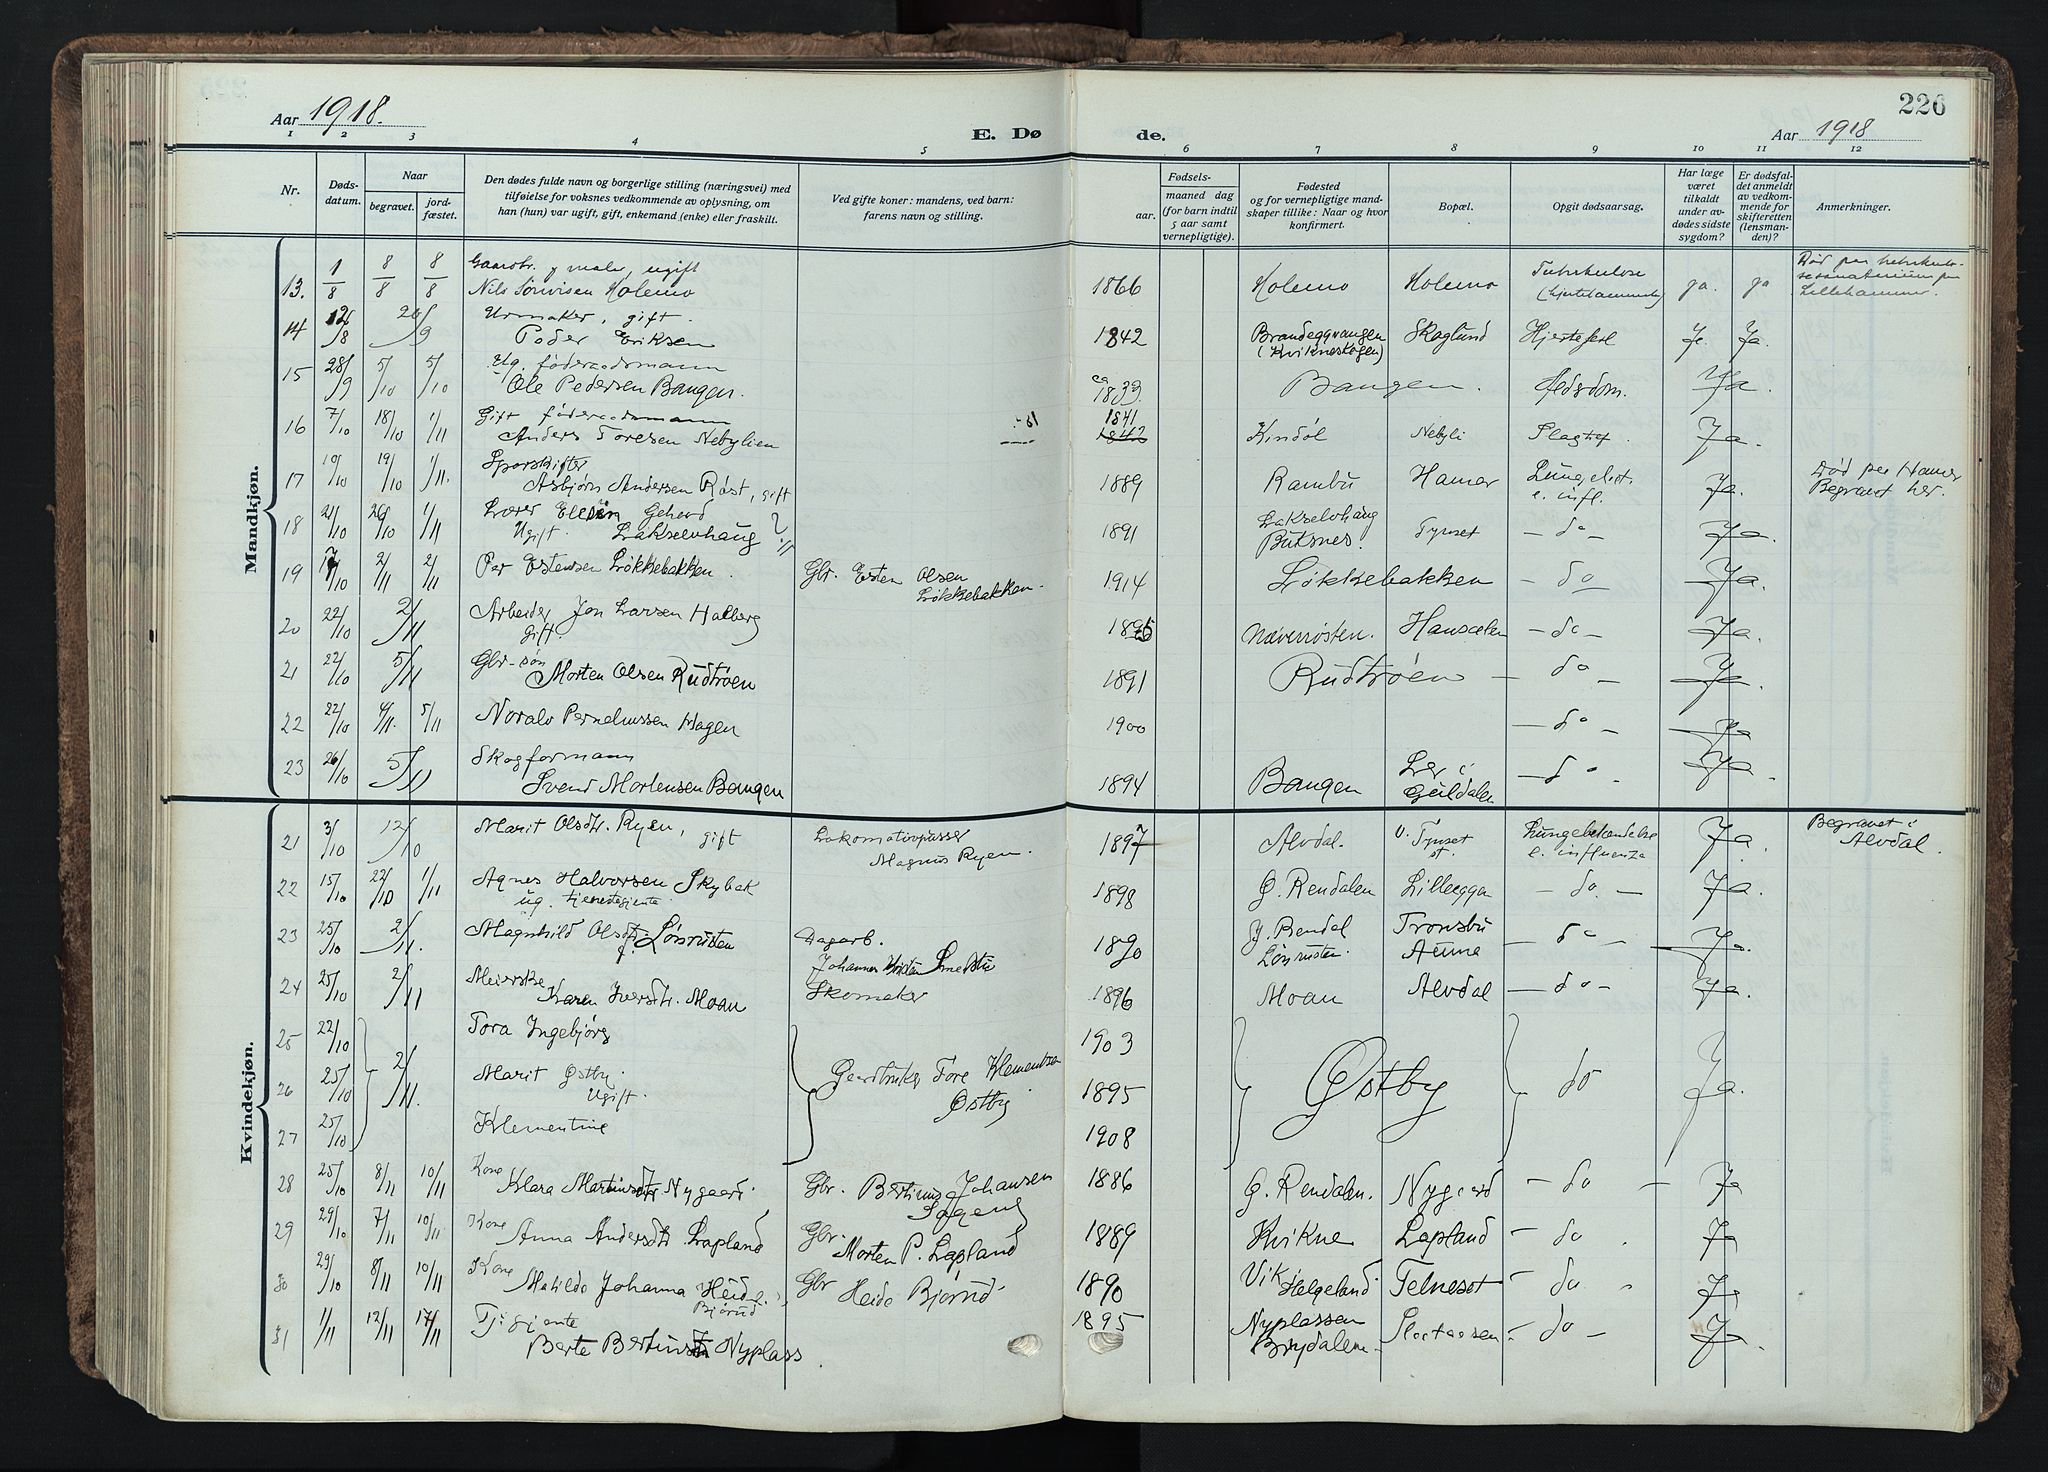 226
Aar 1918.
E. Dø
de.
Aar 1918
1 2 3 4 5 6 7 8 9 10 11 12
Nr.
Døds-
datum.
Naar
begravet.
jord-
fæstet.
Den dødes fulde navn og borgerlige stilling (næringsvei) med
tilføielse for voksnes vedkommende av oplysning, om
han (hun) var ugift, gift, enkemand (enke) eller fraskilt.
Ved gifte koner: mandens, ved barn:
farens navn og stilling.
Fødsels-
aar.
maaned dag
(for barn indtil
5 aar samt
vernepligtige).
Fødested
og for vernepligtige mand-
skaper tillike: Naar og hvor
konfirmert.
Bopæl.
Opgit dødsaarsag.
Har læge
været
tilkaldt
under av-
dødes sidste
sygdom?
Er dødsfal-
det anmeldt
av vedkom-
mende for
skifteretten
(lensman-
den)?
Anmerkninger.
Mandkjøn.
13. 1/8 8/8 8/8 maler, ugift
Nils Holemo 1866 Holemo Holemo Tuberkulose ja. ja
Lillehammer.
14 12/8 20/9 Urmaker, gift.
Peder Eriksen 1842 (Kvikneskogen) Skoglund Hjertefeil Ja. Ja.
15 28/9 5/10 5/10 Ug. føderaadsmann
Ole Pedersen Bangen. ca 1839. Bangen. Alderdom. Ja.
16 7/10 18/10 1/11 Gift føderaadsmann
Anders Toresen Nebylien 1841 1842 Kindøl Nebyli Slagtilf. Ja.
17 10/10 19/10 1/11. Sporskifter
Asbjørn Andersen Røst, gift 1889 Rambu Hamar e. infl. Ja. Død paa Hamar
Begravet her.
18 21/10 26/10 1/11 Lærer
Ugift. Lakselvhaug 1891 Lakselvhaug
Buksnes. Tynset – do – Ja.
19 17/10 2/11 2/11 Per Estensen Løkkebakken. Gbr. Esten Olsen
Løkkebakken. 1914 Løkkebakken – do – Ja.
20 22/10 2/11 Arbeider Jon Larsen Halberg
gift Nævermosten. – do – Ja.
21 22/10 5/11 Gbr-søn
Morten Olsen Rudtrøen 1891 Rudtrøen – do – Ja.
22 22/10 4/11. 5/11 Hagen 1900 – do – Ja
23 26/10 5/11 Skogformann
Svend Mortensen Bangen 1894 Bangen – do – Ja
Kvindekjøn.
21 3/10 12/10 Marit Olsdtr. Ryen, gift Lokomotivpusser
Magnus Ryen. 1897 Alvdal. v. Tynset
st. Lungebetændelse
e. influenza Ja. Begravet i
Alvdal.
22 15/10 22/10 1/11 Agnes Halvorsen Skybak
ug. tjenestejente. 1898 Ø. Rendalen Lilleeggen – do. – Ja.
23 25/10 2/11. Magnhild Olsdtr. Lønrusten Dagarb.
Johannes 1890 Y. Rendal
Lønrusten. Tronsbu
Aunne – do – Ja.
24 25/10 2/11 Meierske
Karen Iversdtr. Moan Skomaker 1896 Moan Alvdal – do – Ja.
25 22/10 Tora Ingebjørg 1903
26 25/10 2/11. Marit Østby.
Ugift. Gaardbruker Tore Klementsen
Østby 1895 Østby do Ja.
27 25/10 Klementine 1908
28 25/10 8/11 10/11 Kone
Klara Martinsdtr Nygaard. Gbr. Bertinus Johansen 1886 Ø. Rendalen. Nygaard – do – Ja
29 29/10 7/11 10/11 Kone
Anna Andersdtr Lapland Gbr.
Morten P. Lapland 1889 Kvikne Lapland – do. Ja
30 29/10 8/11 10/11 Kone
Matilde Johanna Heide.
Bjørud Gbr Heide Bjørud 1890 Vik Helgeland Telneset – do Ja.
31 1/11 12/11 17/11 Tj: gjente
Berte Bertinsdtr Nyplass. 1895 Nyplassen
Brydalen. – do – Ja